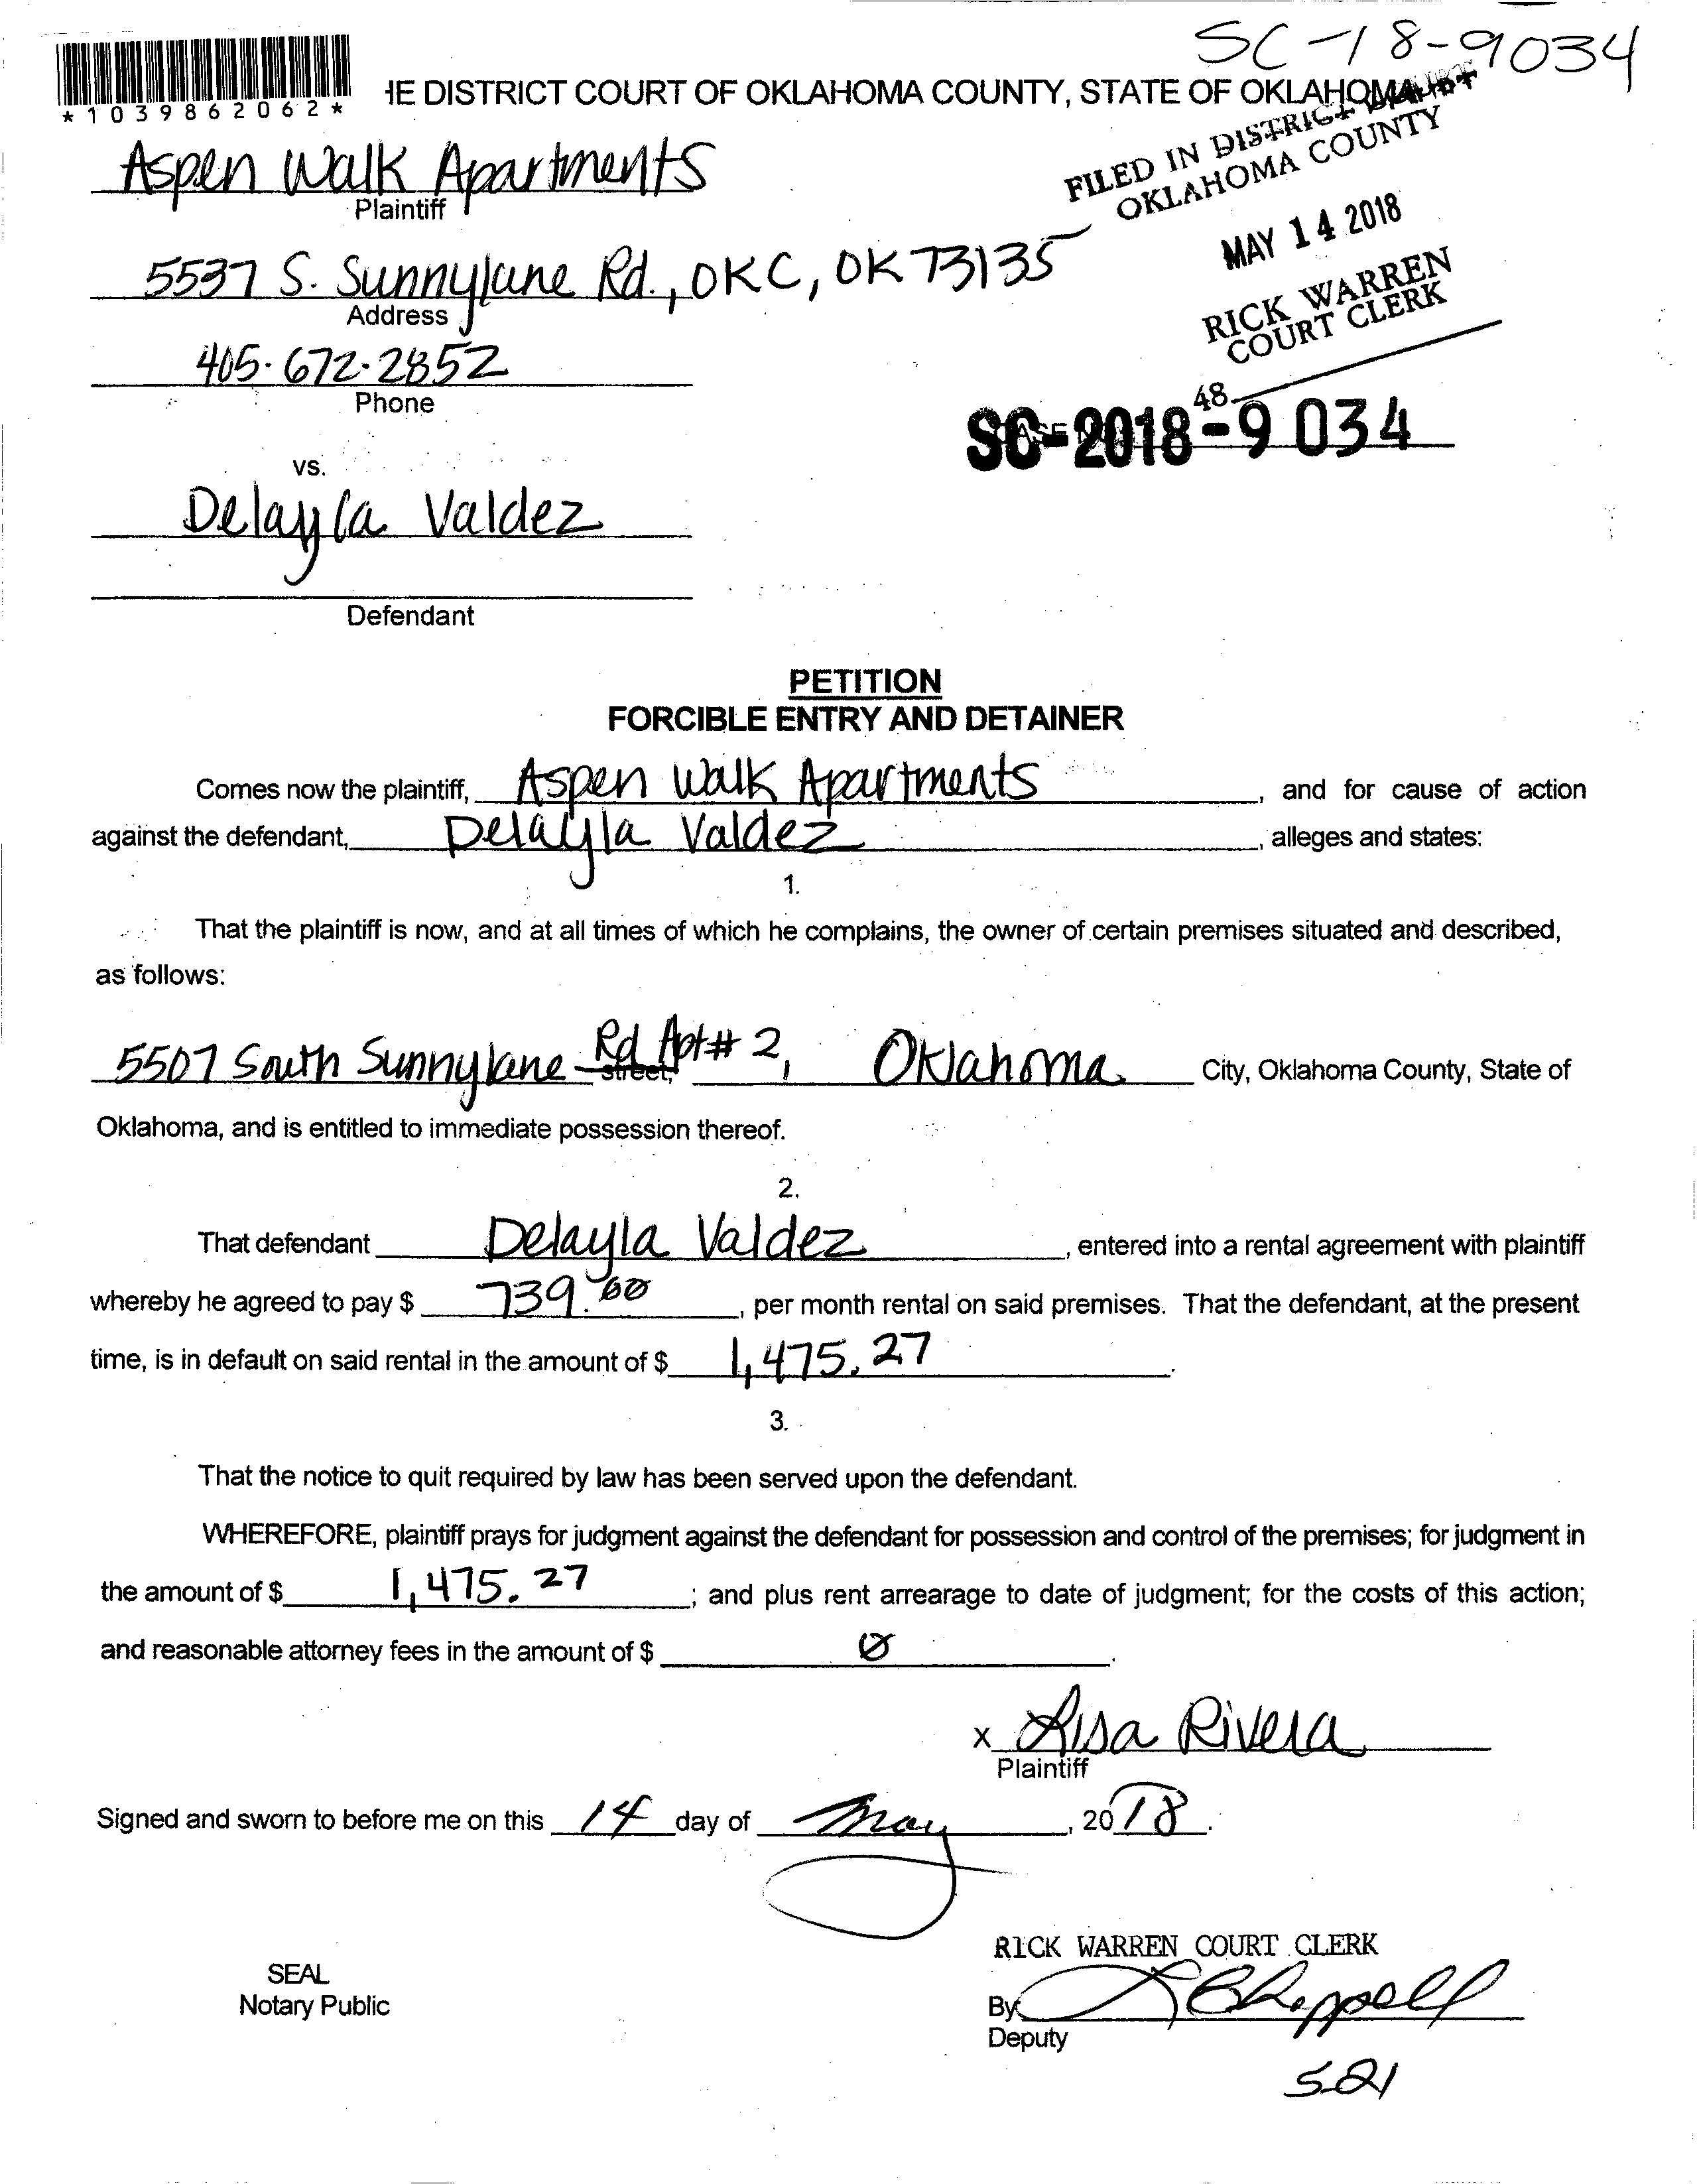 SC-18-9034
*1039862062*
HE DISTRICT COURT OF OKLAHOMA COUNTY, STATE OF OKLAHOMA
FILED IN DISTRICT COURT
OKLAHOMA COUNTY
Aspen Walk Apartments
Plaintiff
MAY 14 2018
5537 S. Sunnylane Rd., OKC, OK 73135
Address
RICK WARREN
COURT CLERK
405-672-2852
Phone
48
SC-2018-9034
vs.
Delayla Valdez
Defendant
PETITION
FORCIBLE ENTRY AND DETAINER
Comes now the plaintiff, Aspen Walk Apartments, and for cause of action
against the defendant, Delayla Valdez, alleges and states:
1.
That the plaintiff is now, and at all times of which he complains, the owner of certain premises situated and described,
as follows:
5507 South Sunnylane street, Rd Apt# 2, Oklahoma City, Oklahoma County, State of
Oklahoma, and is entitled to immediate possession thereof.
2.
That defendant Delayla Valdez, entered into a rental agreement with plaintiff
whereby he agreed to pay $ 739.00, per month rental on said premises. That the defendant, at the present
time, is in default on said rental in the amount of $ 1,475.27.
3.
That the notice to quit required by law has been served upon the defendant.
WHEREFORE, plaintiff prays for judgment against the defendant for possession and control of the premises; for judgment in
the amount of $ 1,475.27; and plus rent arrearage to date of judgment; for the costs of this action;
and reasonable attorney fees in the amount of $ 0.
x Lisa Rivera
Plaintiff
Signed and sworn to before me on this 14 day of May, 2018.
RICK WARREN COURT CLERK
SEAL
Notary Public
By Chappell
Deputy
521